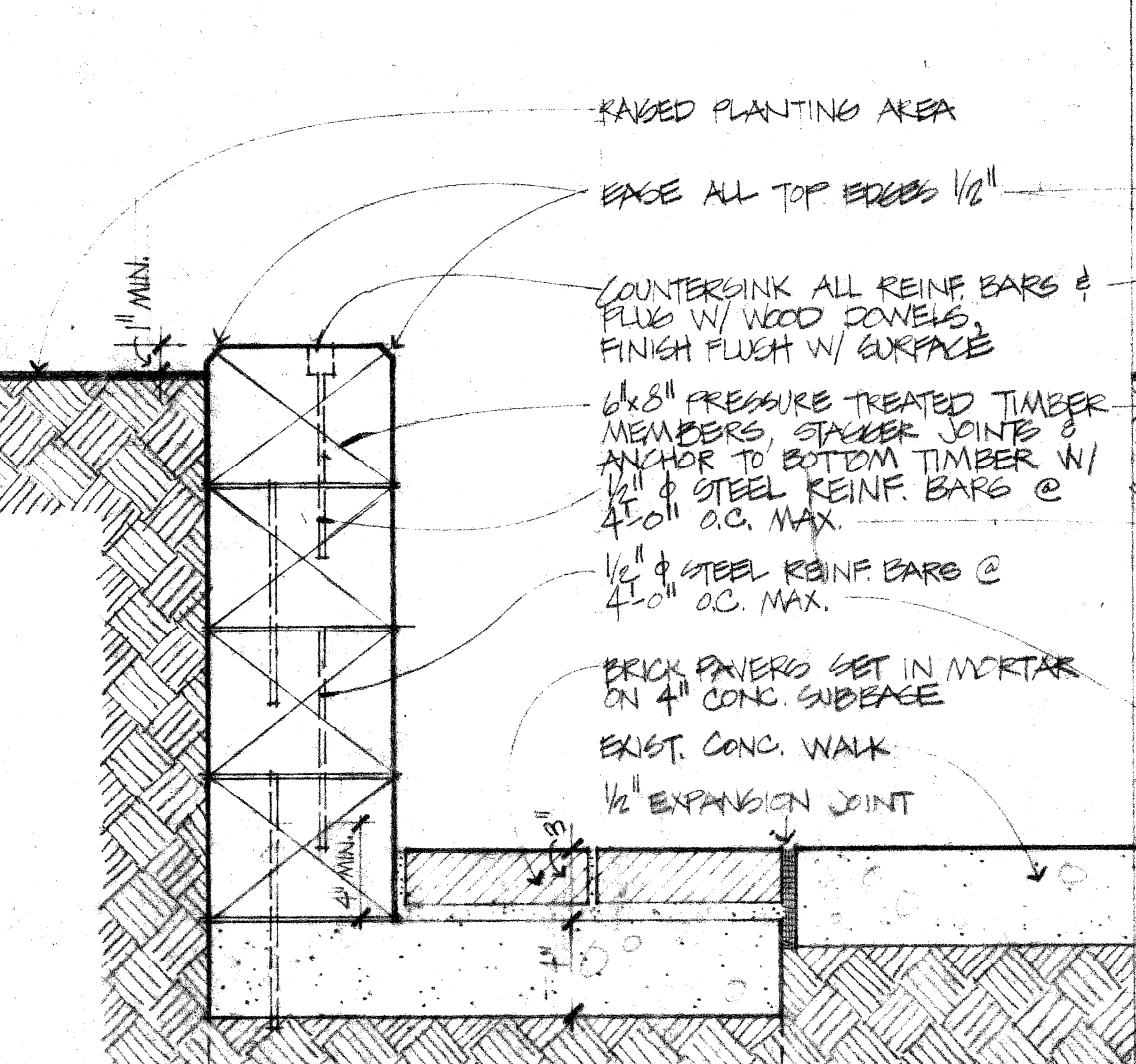 RAISED PLANTING AREA
EASE ALL TOP EDGES 1/2"
1" MIN.
COUNTERSINK ALL REINF. BARS &
PLUG W/ WOOD DOWELS,
FINISH FLUSH W/ SURFACE
6"x8" PRESSURE TREATED TIMBER
MEMBERS, STAGGER JOINTS &
ANCHOR TO BOTTOM TIMBER W/
1/2" ϕ STEEL REINF. BARS @
4'-0" O.C. MAX.
1/2" ϕ STEEL REINF. BARS @
4'-0" O.C. MAX.
BRICK PAVERS SET IN MORTAR
ON 4" CONC. SUBBASE
EXIST. CONC. WALK
1/2" EXPANSION JOINT
3"
4" MIN.